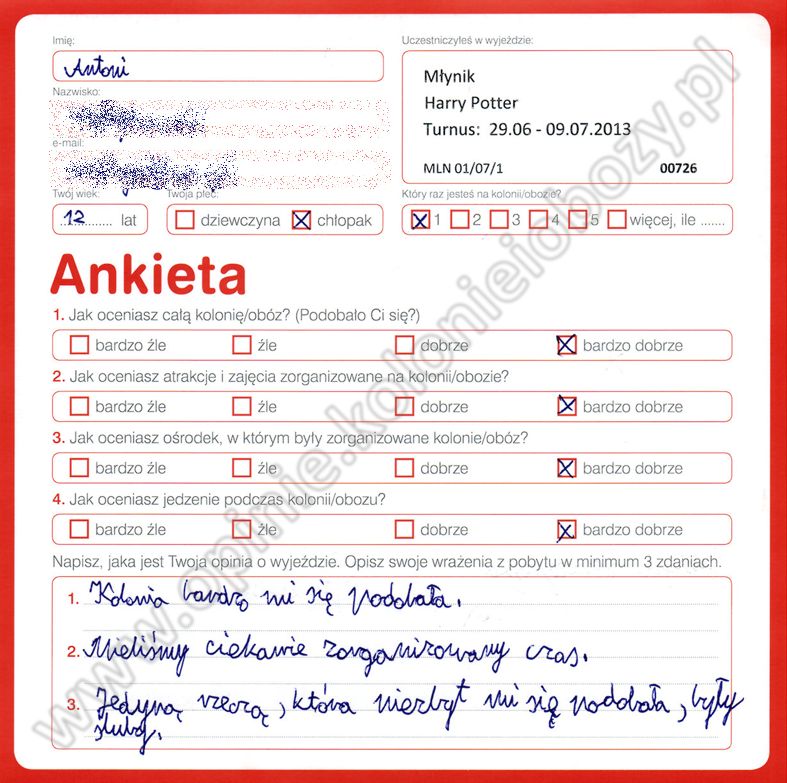 Imię:
Antoni
Nazwisko:
e-mail:
Twój wiek:
12 lat
Twoja płeć:
dziewczyna chłopak
Uczestniczyłeś w wyjeździe:
Młynik
Harry Potter
Turnus: 29.06 - 09.07.2013
MLN 01/07/1 00726
Który raz jesteś na kolonii/obozie?
1 2 3 4 5 więcej, ile .......
Ankieta
1. Jak oceniasz całą kolonię/obóz? (Podobało Ci się?)
bardzo źle źle dobrze bardzo dobrze
2. Jak oceniasz atrakcje i zajęcia zorganizowane na kolonii/obozie?
bardzo źle źle dobrze bardzo dobrze
3. Jak oceniasz ośrodek, w którym były zorganizowane kolonie/obóz?
bardzo źle źle dobrze bardzo dobrze
4. Jak oceniasz jedzenie podczas kolonii/obozu?
bardzo źle źle dobrze bardzo dobrze
Napisz, jaka jest Twoja opinia o wyjeździe. Opisz swoje wrażenia z pobytu w minimum 3 zdaniach.
1. Kolonia bardzo mi się podobała.
2. Mieliśmy ciekawie zorganizowany czas.
3. Jedyną rzeczą, która niezbyt mi się podobała, były
śluby.
www.opinie.kolonieiobozy.pl